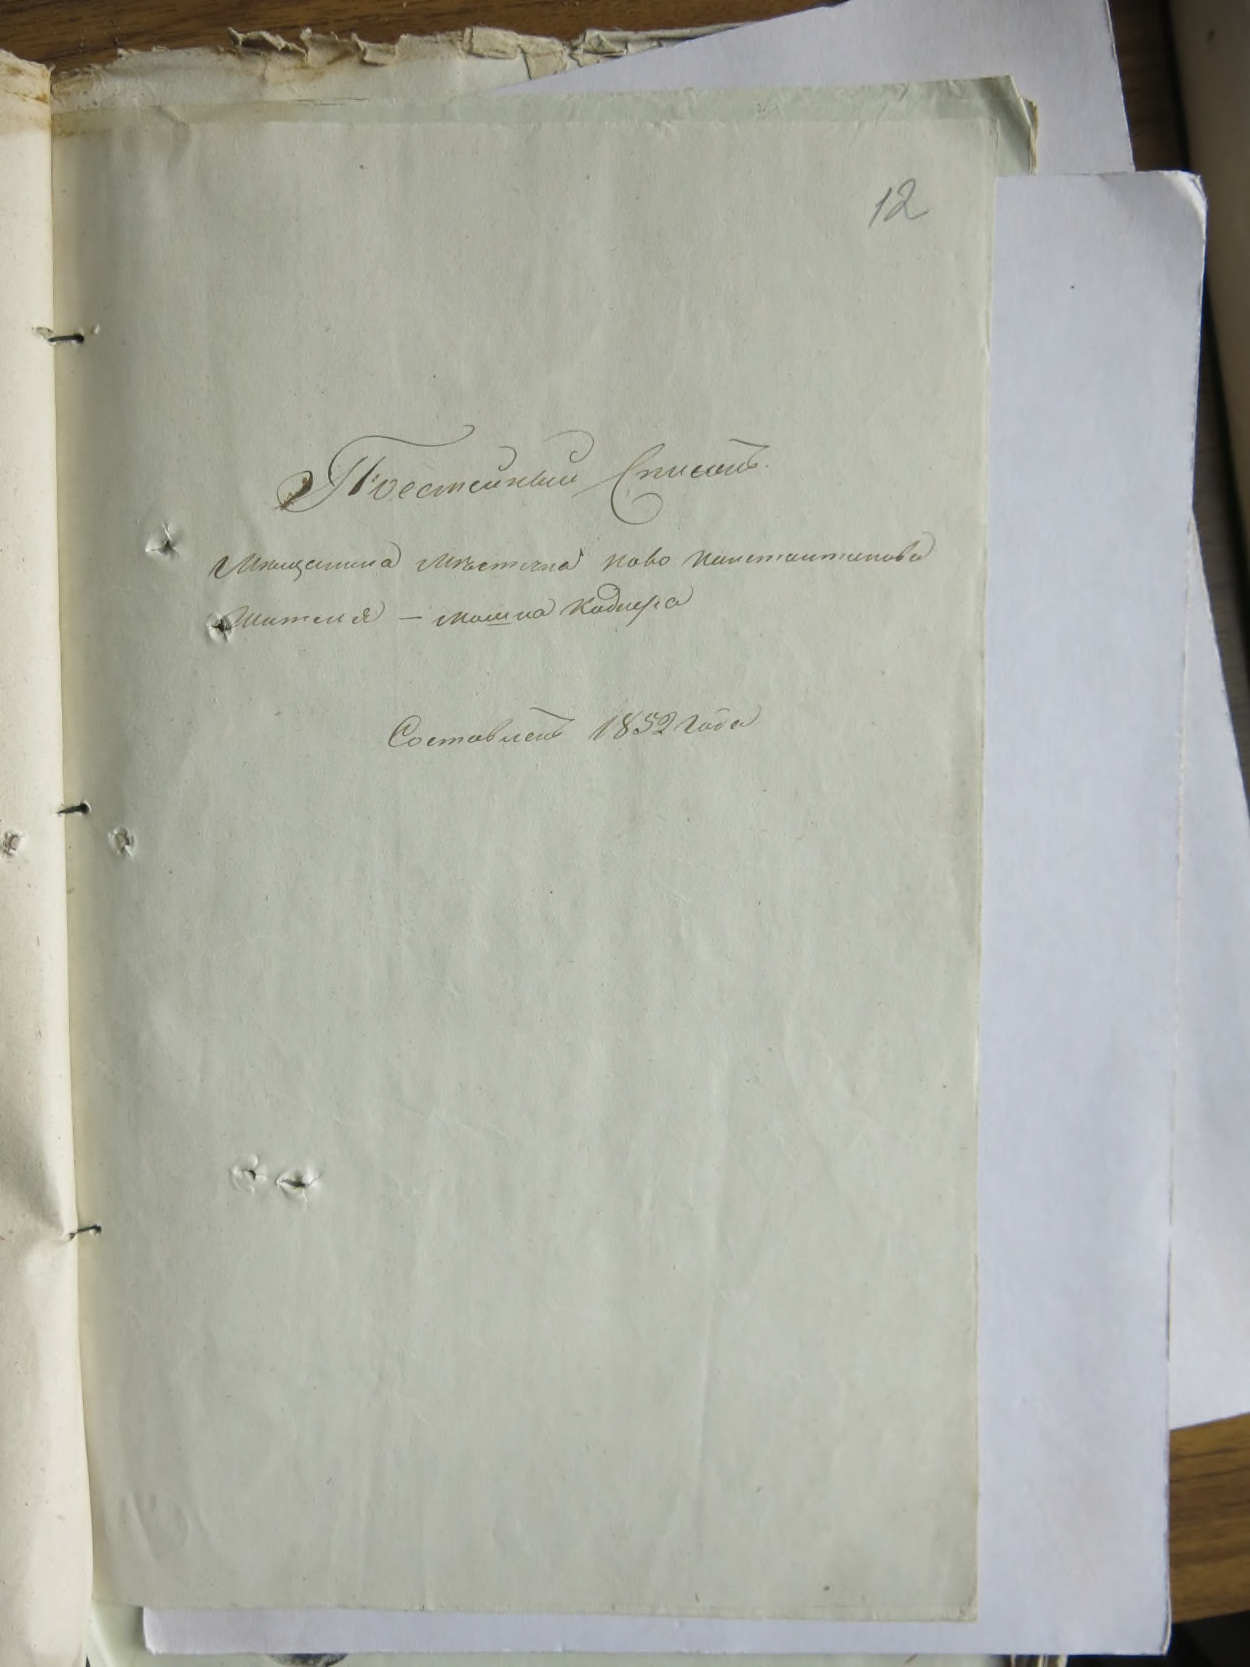 12
Посемейный Списокъ
Мещанина Местечка Ново Константинова
Жителя — Мошка Коднера
Составленъ 1852 года